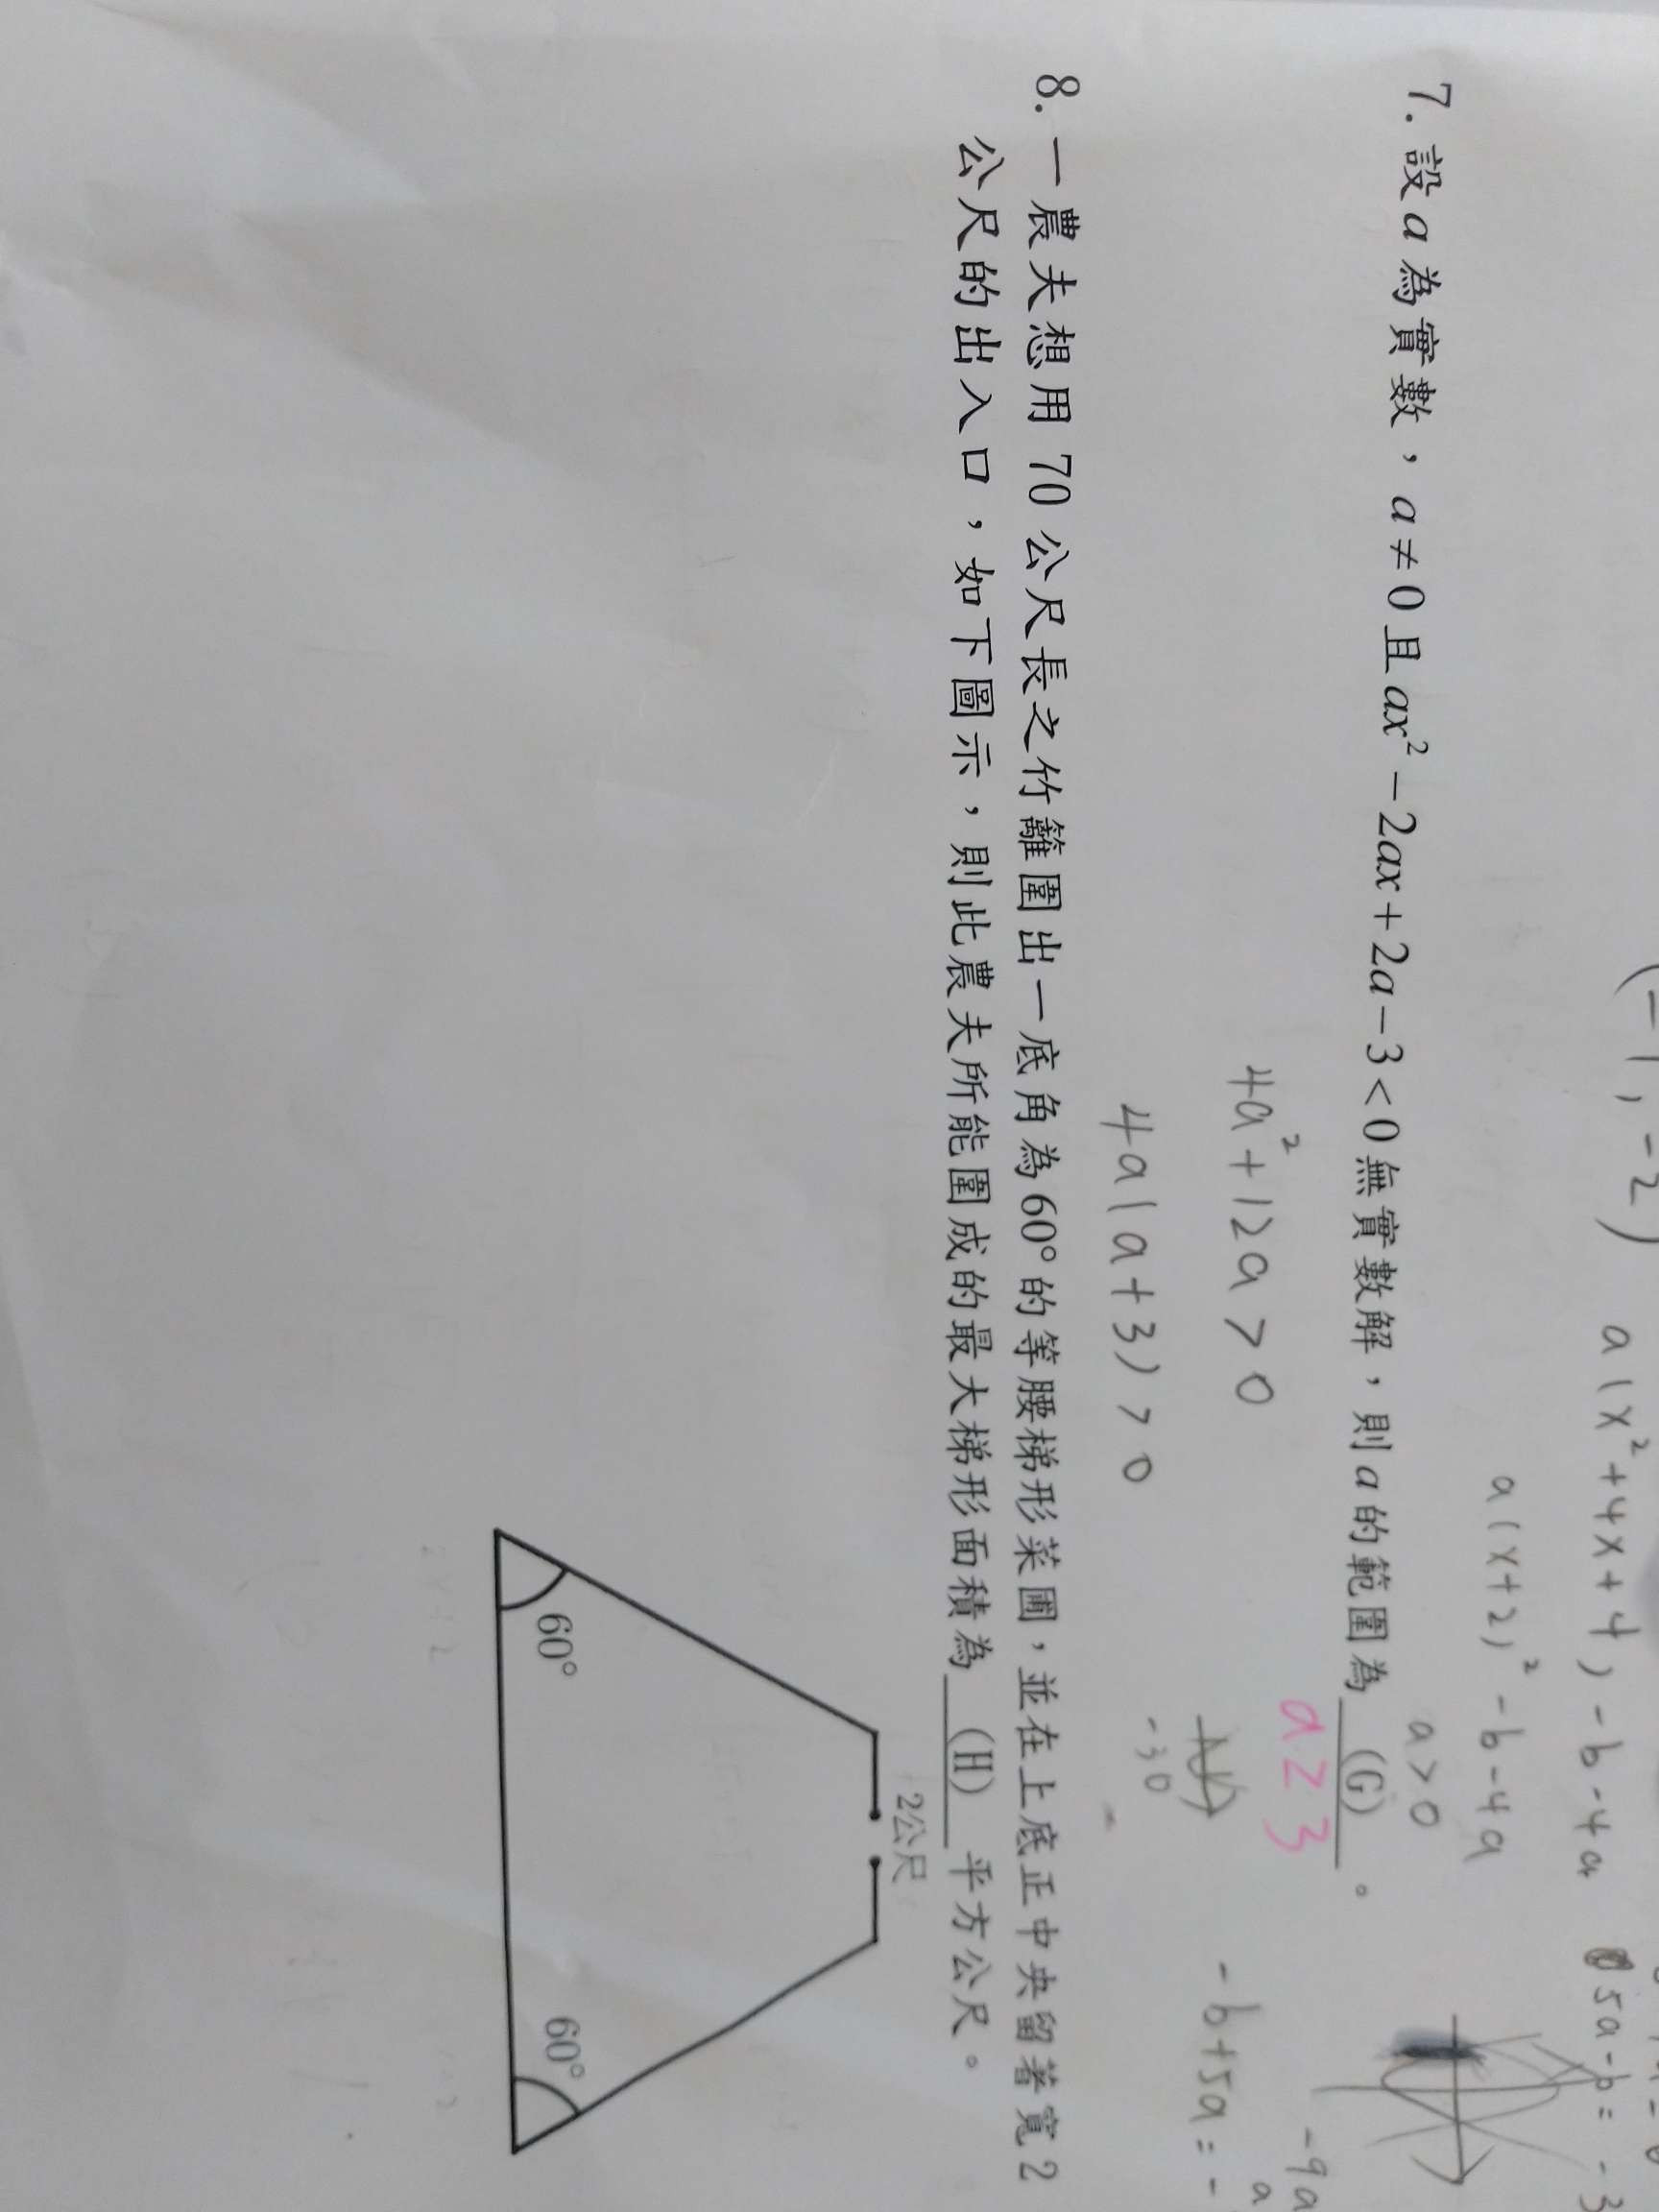 (-1, -2) a(x²+4x+4)-b-4a
5a-b=-3
a(x+2)²-b-4a
a>0
7. 設a為實數，a≠0且ax²-2ax+2a-3<0無實數解，則a的範圍為 (G) 。
a≥3
-9a
4a²+12a>0
-b+5a=-
4a(a+3)>0
-30
8. 一農夫想用 70 公尺長之竹籬圍出一底角為60°的等腰梯形菜圃，並在上底正中央留著寬2
公尺的出入口，如下圖示，則此農夫所能圍成的最大梯形面積為 (H) 平方公尺。
2公尺
60°
60°